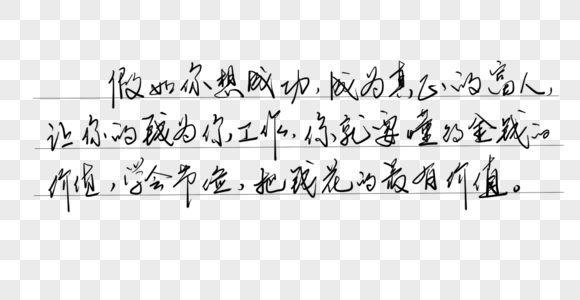 假如你想成功,成为真正的富人,
让你的钱为你工作,你就要懂的金钱的
价值,学会节俭,把钱花的最有价值。